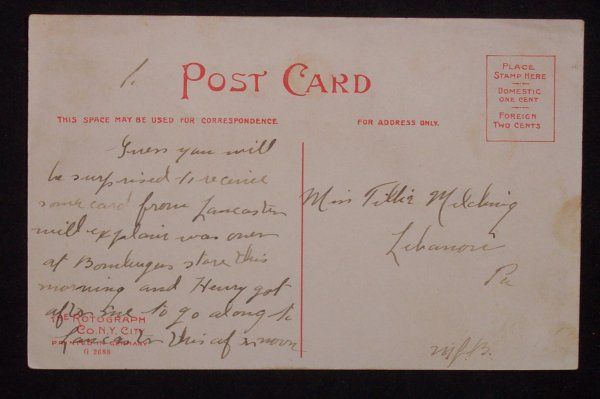 1.
POST CARD
PLACE
STAMP HERE
DOMESTIC
ONE CENT
FOREIGN
TWO CENTS
THIS SPACE MAY BE USED FOR CORRESPONDENCE
FOR ADDRESS ONLY.
Guess you will
be surprised to receive
some card from Lancaster
will explain was over
at store this
morning and Henry got
after me to go along to
Lancaster this afternoon
Miss Tillie
Lebanon
Pa
THE ROTOGRAPH
CO. N.Y. CITY
PRINTED IN GERMANY
G 2688